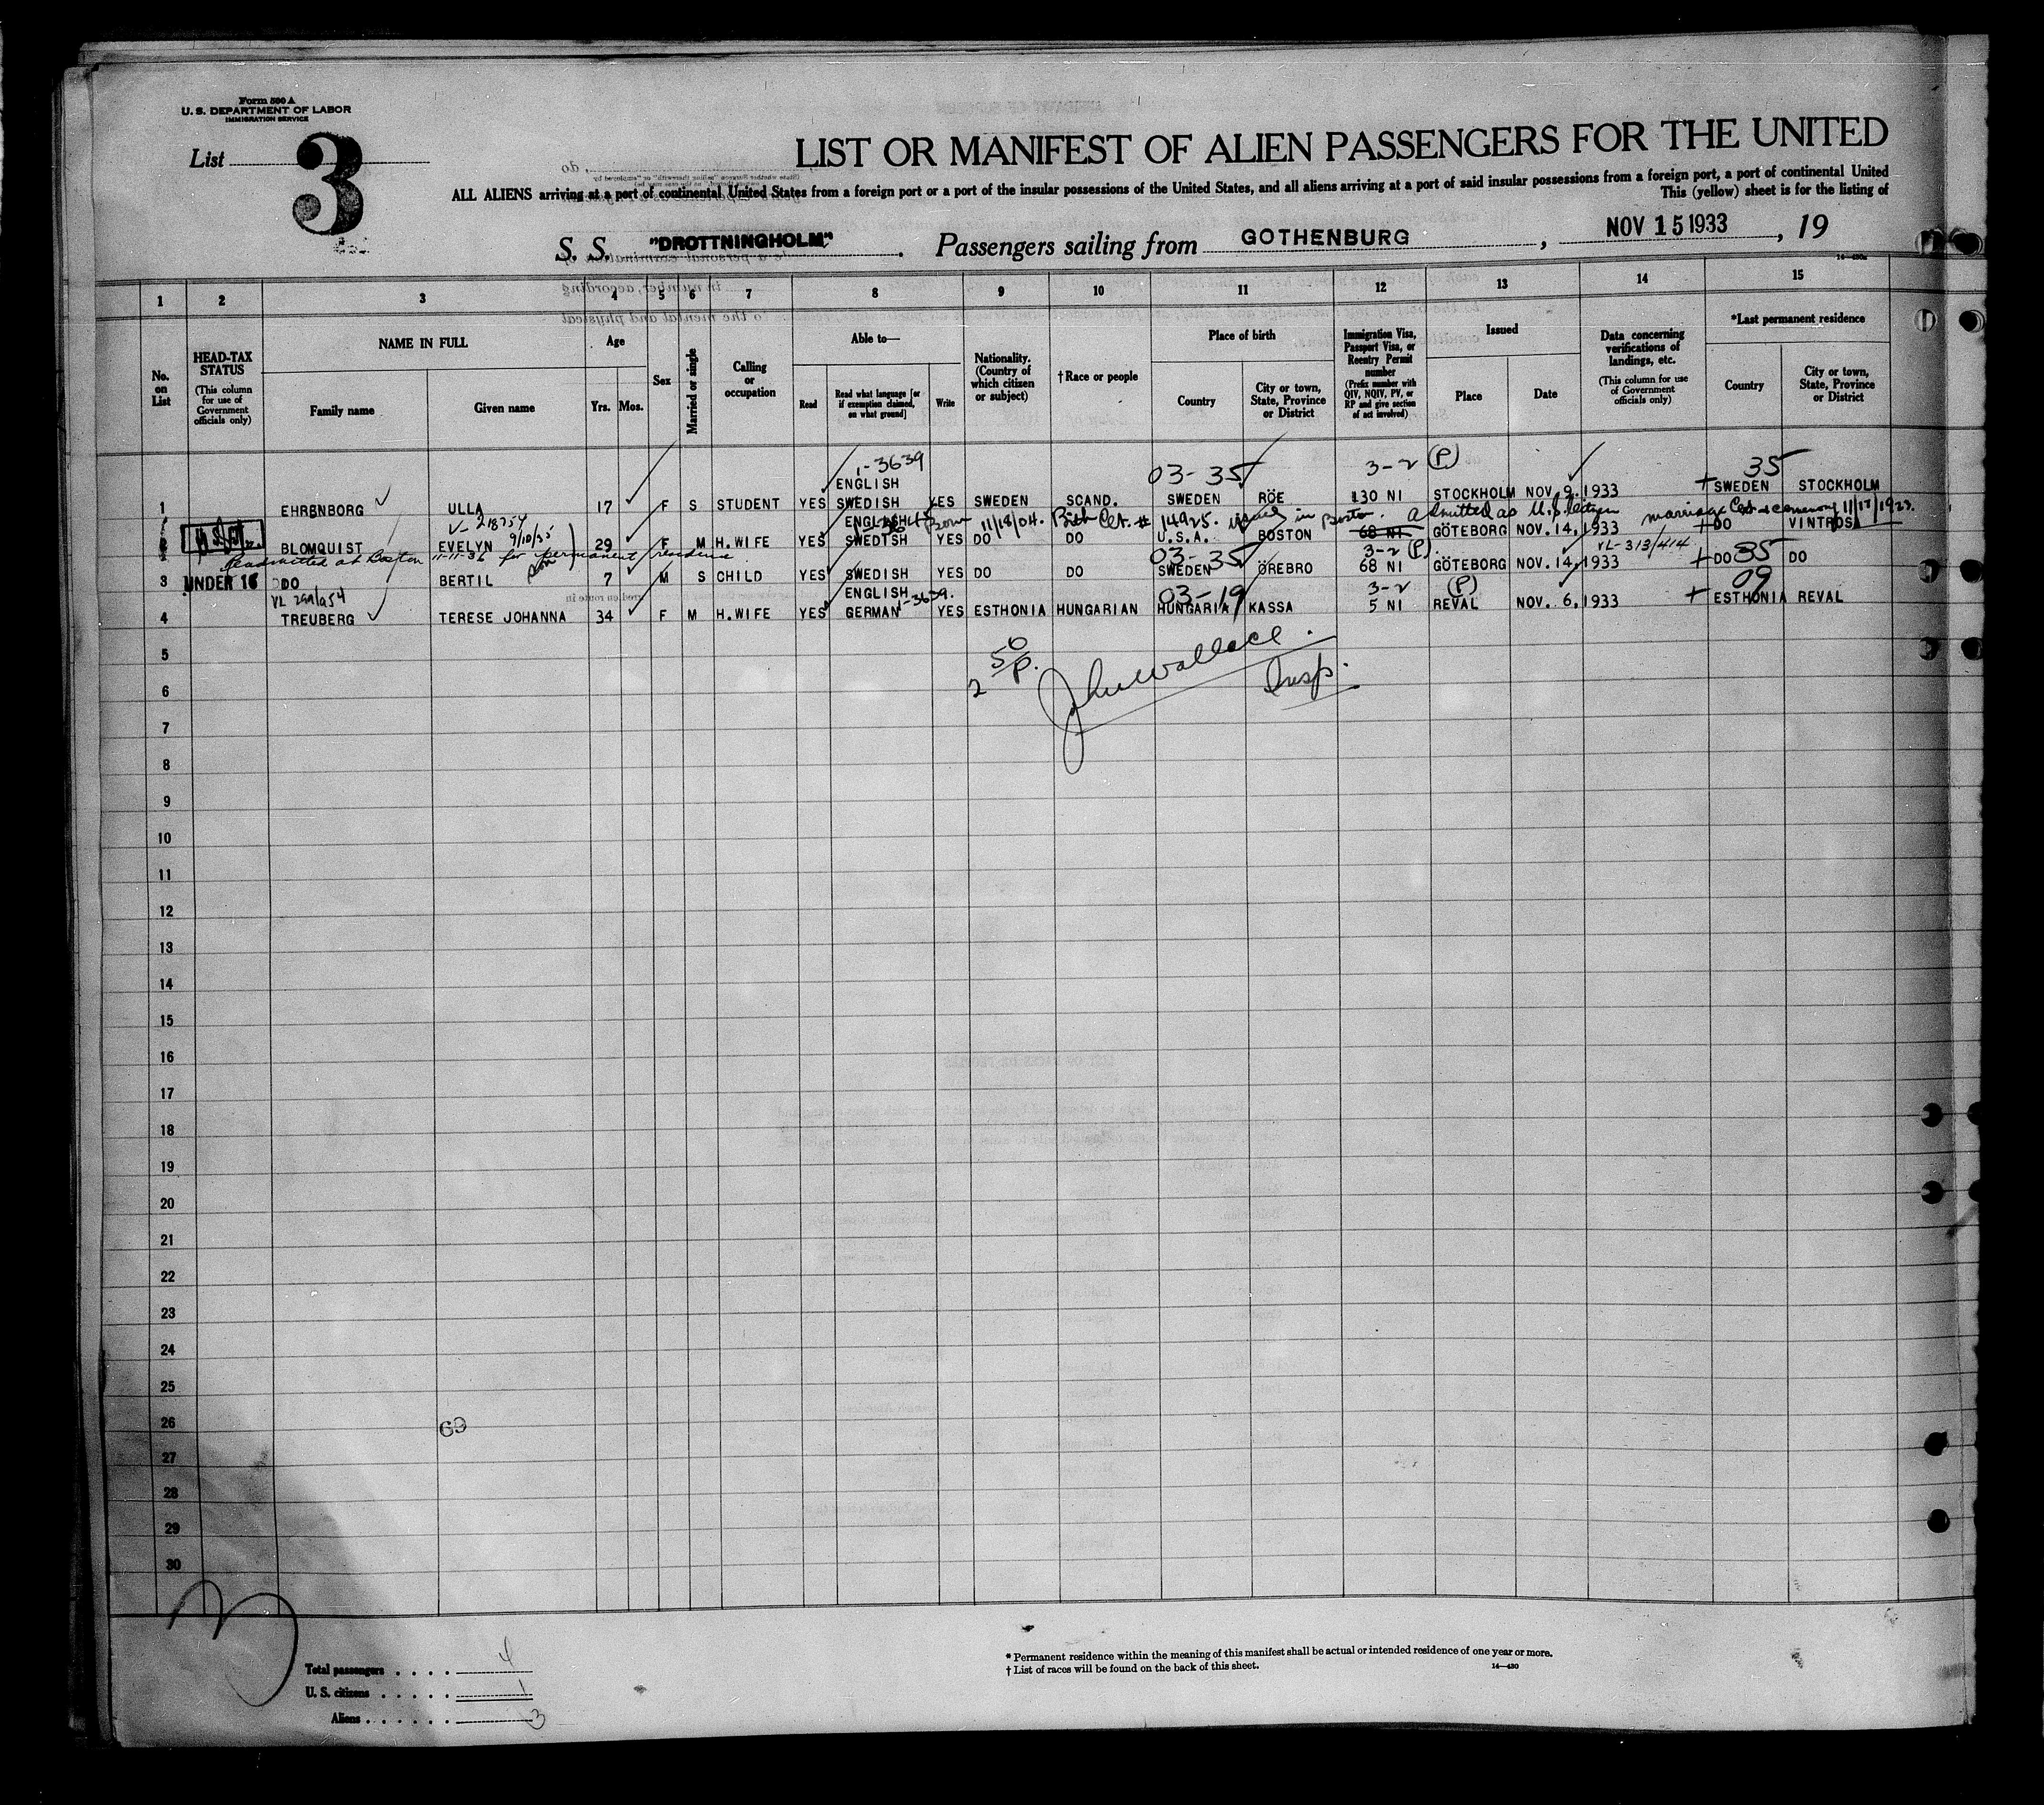 Form 500 A
U. S. DEPARTMENT OF LABOR
IMMIGRATION SERVICE
List 3
LIST OR MANIFEST OF ALIEN PASSENGERS FOR THE UNITED
ALL ALIENS arriving at a port of continental United States from a foreign port or a port of the insular possessions of the United States, and all aliens arriving at a port of said insular possessions from a foreign port, a port of continental United
This (yellow) sheet is for the listing of
S. S. "DROTTNINGHOLM" . Passengers sailing from GOTHENBURG , NOV 15 1933 , 19
1 2 3 4 5 6 7 8 9 10 11 12 13 14 15
No. on List
HEAD-TAX STATUS
(This column for use of Government officials only)
NAME IN FULL
Family name
Given name
Age
Yrs. Mos.
Sex
Married or single
Calling or occupation
Able to—
Read
Read what language [or if exemption claimed, on what ground]
Write
Nationality. (Country of which citizen or subject)
† Race or people
Place of birth
Country
City or town, State, Province or District
Immigration Visa, Passport Visa, or Reentry Permit number
(Prefix number with QIV, NQIV, PV, or RP and give section of act involved)
Issued
Place
Date
Data concerning verifications of landings, etc.
(This column for use of Government officials only)
*Last permanent residence
Country
City or town, State, Province or District
1-3639 03-35 3-2 (P) 35
ENGLISH
1 EHRENBORG ULLA 17 F S STUDENT YES SWEDISH YES SWEDEN SCAND. SWEDEN RÖE 130 NI STOCKHOLM NOV. 9. 1933 + SWEDEN STOCKHOLM
V- 218754 9/10/35 ENGLISH Born 11/18/04. Birth Cet. # 14925. issued in Boston. Admitted as U.S. Citizen marriage Cet. ceremony 11/17/1923.
BLOMQUIST EVELYN 29 F M H.WIFE YES SWEDTSH YES DO DO U.S.A. BOSTON 68 NI GÖTEBORG NOV. 14, 1933 + DO VINTROSA
Readmitted at Boston 11-11-35 for permanent residence 03-35 3-2 (P) VL-313/414 35
3 UNDER 16 DO BERTIL 7 M S CHILD YES SWEDISH YES DO DO SWEDEN ÖREBRO 68 NI GÖTEBORG NOV. 14, 1933 + DO DO
ENGLISH 1-3639. 03-19 3-2 (P) 09
4 TREUBERG TERESE JOHANNA 34 F M H.WIFE YES GERMAN YES ESTHONIA HUNGARIAN HUNGARIA KASSA 5 NI REVAL NOV. 6, 1933 + ESTHONIA REVAL
5
2 50/P. John Wallace. Insp.
6
7
8
9
10
11
12
13
14
15
16
17
18
19
20
21
22
23
24
25
26
69
27
28
29
30
3
Total passengers . . . . 4
U. S. citizens . . . . . 1
Aliens . . . . . . 3
* Permanent residence within the meaning of this manifest shall be actual or intended residence of one year or more.
† List of races will be found on the back of this sheet.
14—430